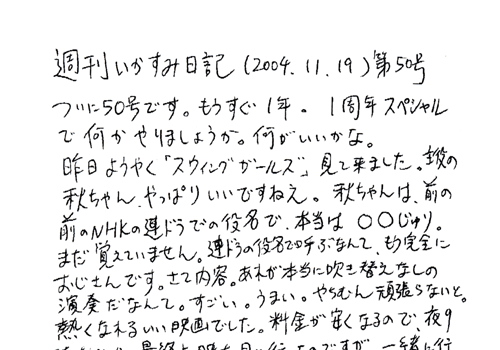 週刊いかすみ日記(2004.11.19)第50号
ついに50号です。もうすぐ1年。1周年スペシャル
で何かやりましょうか。何がいいかな。
昨日ようやく「スウィングガールズ」見て来ました。主役の
秋ちゃん、やっぱりいいですねえ。秋ちゃんは、前の
前のNHKの連ドラでの役名で、本当は〇〇じゅり。
まだ覚えていません。連ドラの役名で呼ぶなんて、もう完全に
おじさんです。さて内容。あれが本当に吹き替えなしの
演奏だなんて。すごい。うまい。やちむん頑張らないと。
熱くなれるいい映画でした。料金が安くなるので、夜9